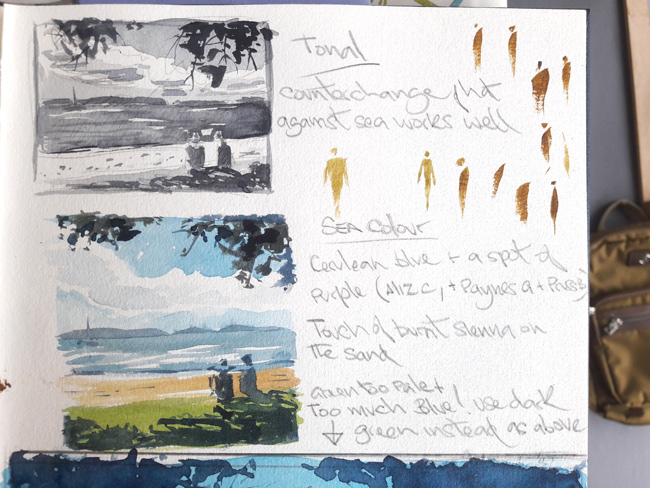 Tonal
counterchange, hat
against sea works well
SEA Colour
Cerulean blue + a spot of
Purple (MIZC, + Paynes G + PRUSB)
Touch of burnt sienna on
The sand
green too Pale +
Too much Blue! use dark
green instead as above